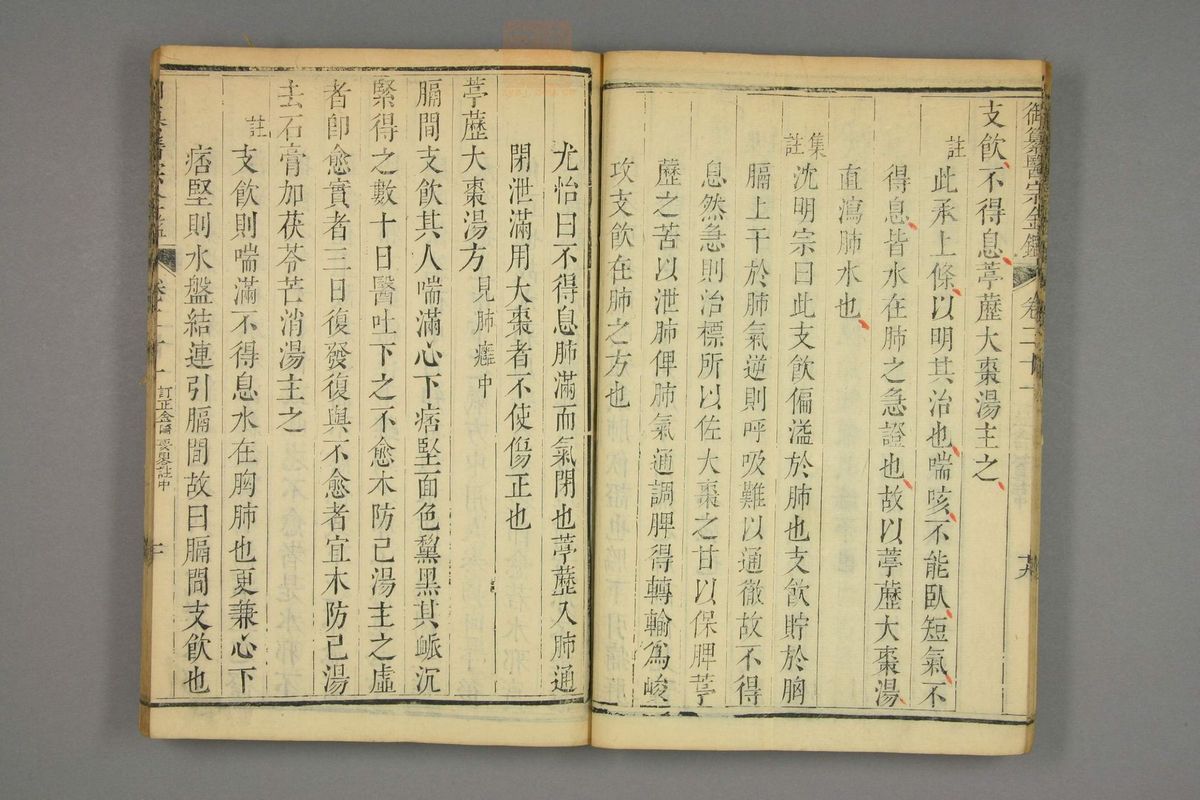 御纂醫宗金鑑 卷二十一 十九
支飲不得息葶藶大棗湯主之
註 此承上條以明其治也喘咳不能臥短氣不
得息皆水在肺之急證也故以葶藶大棗湯
直瀉肺水也
集註 沈明宗曰此支飲偏溢於肺也支飲貯於胸
膈上干於肺氣逆則呼吸難以通徹故不得
息然急則治標所以佐大棗之甘以保脾葶
藶之苦以泄肺俾肺氣通調脾得轉輸為峻
攻支飲在肺之方也
尤怡曰不得息肺滿而氣閉也葶藶入肺通
閉泄滿用大棗者不使傷正也
葶藶大棗湯方 見肺癰中
膈間支飲其人喘滿心下痞堅面色黧黑其脈沉
緊得之數十日醫吐下之不愈木防己湯主之虛
者即愈實者三日復發復與不愈者宜木防己湯
去石膏加茯苓芒消湯主之
註 支飲則喘滿不得息水在胸肺也更兼心下
痞堅則水盤結連引膈間故曰膈間支飲也
訂正金匱要畧註中